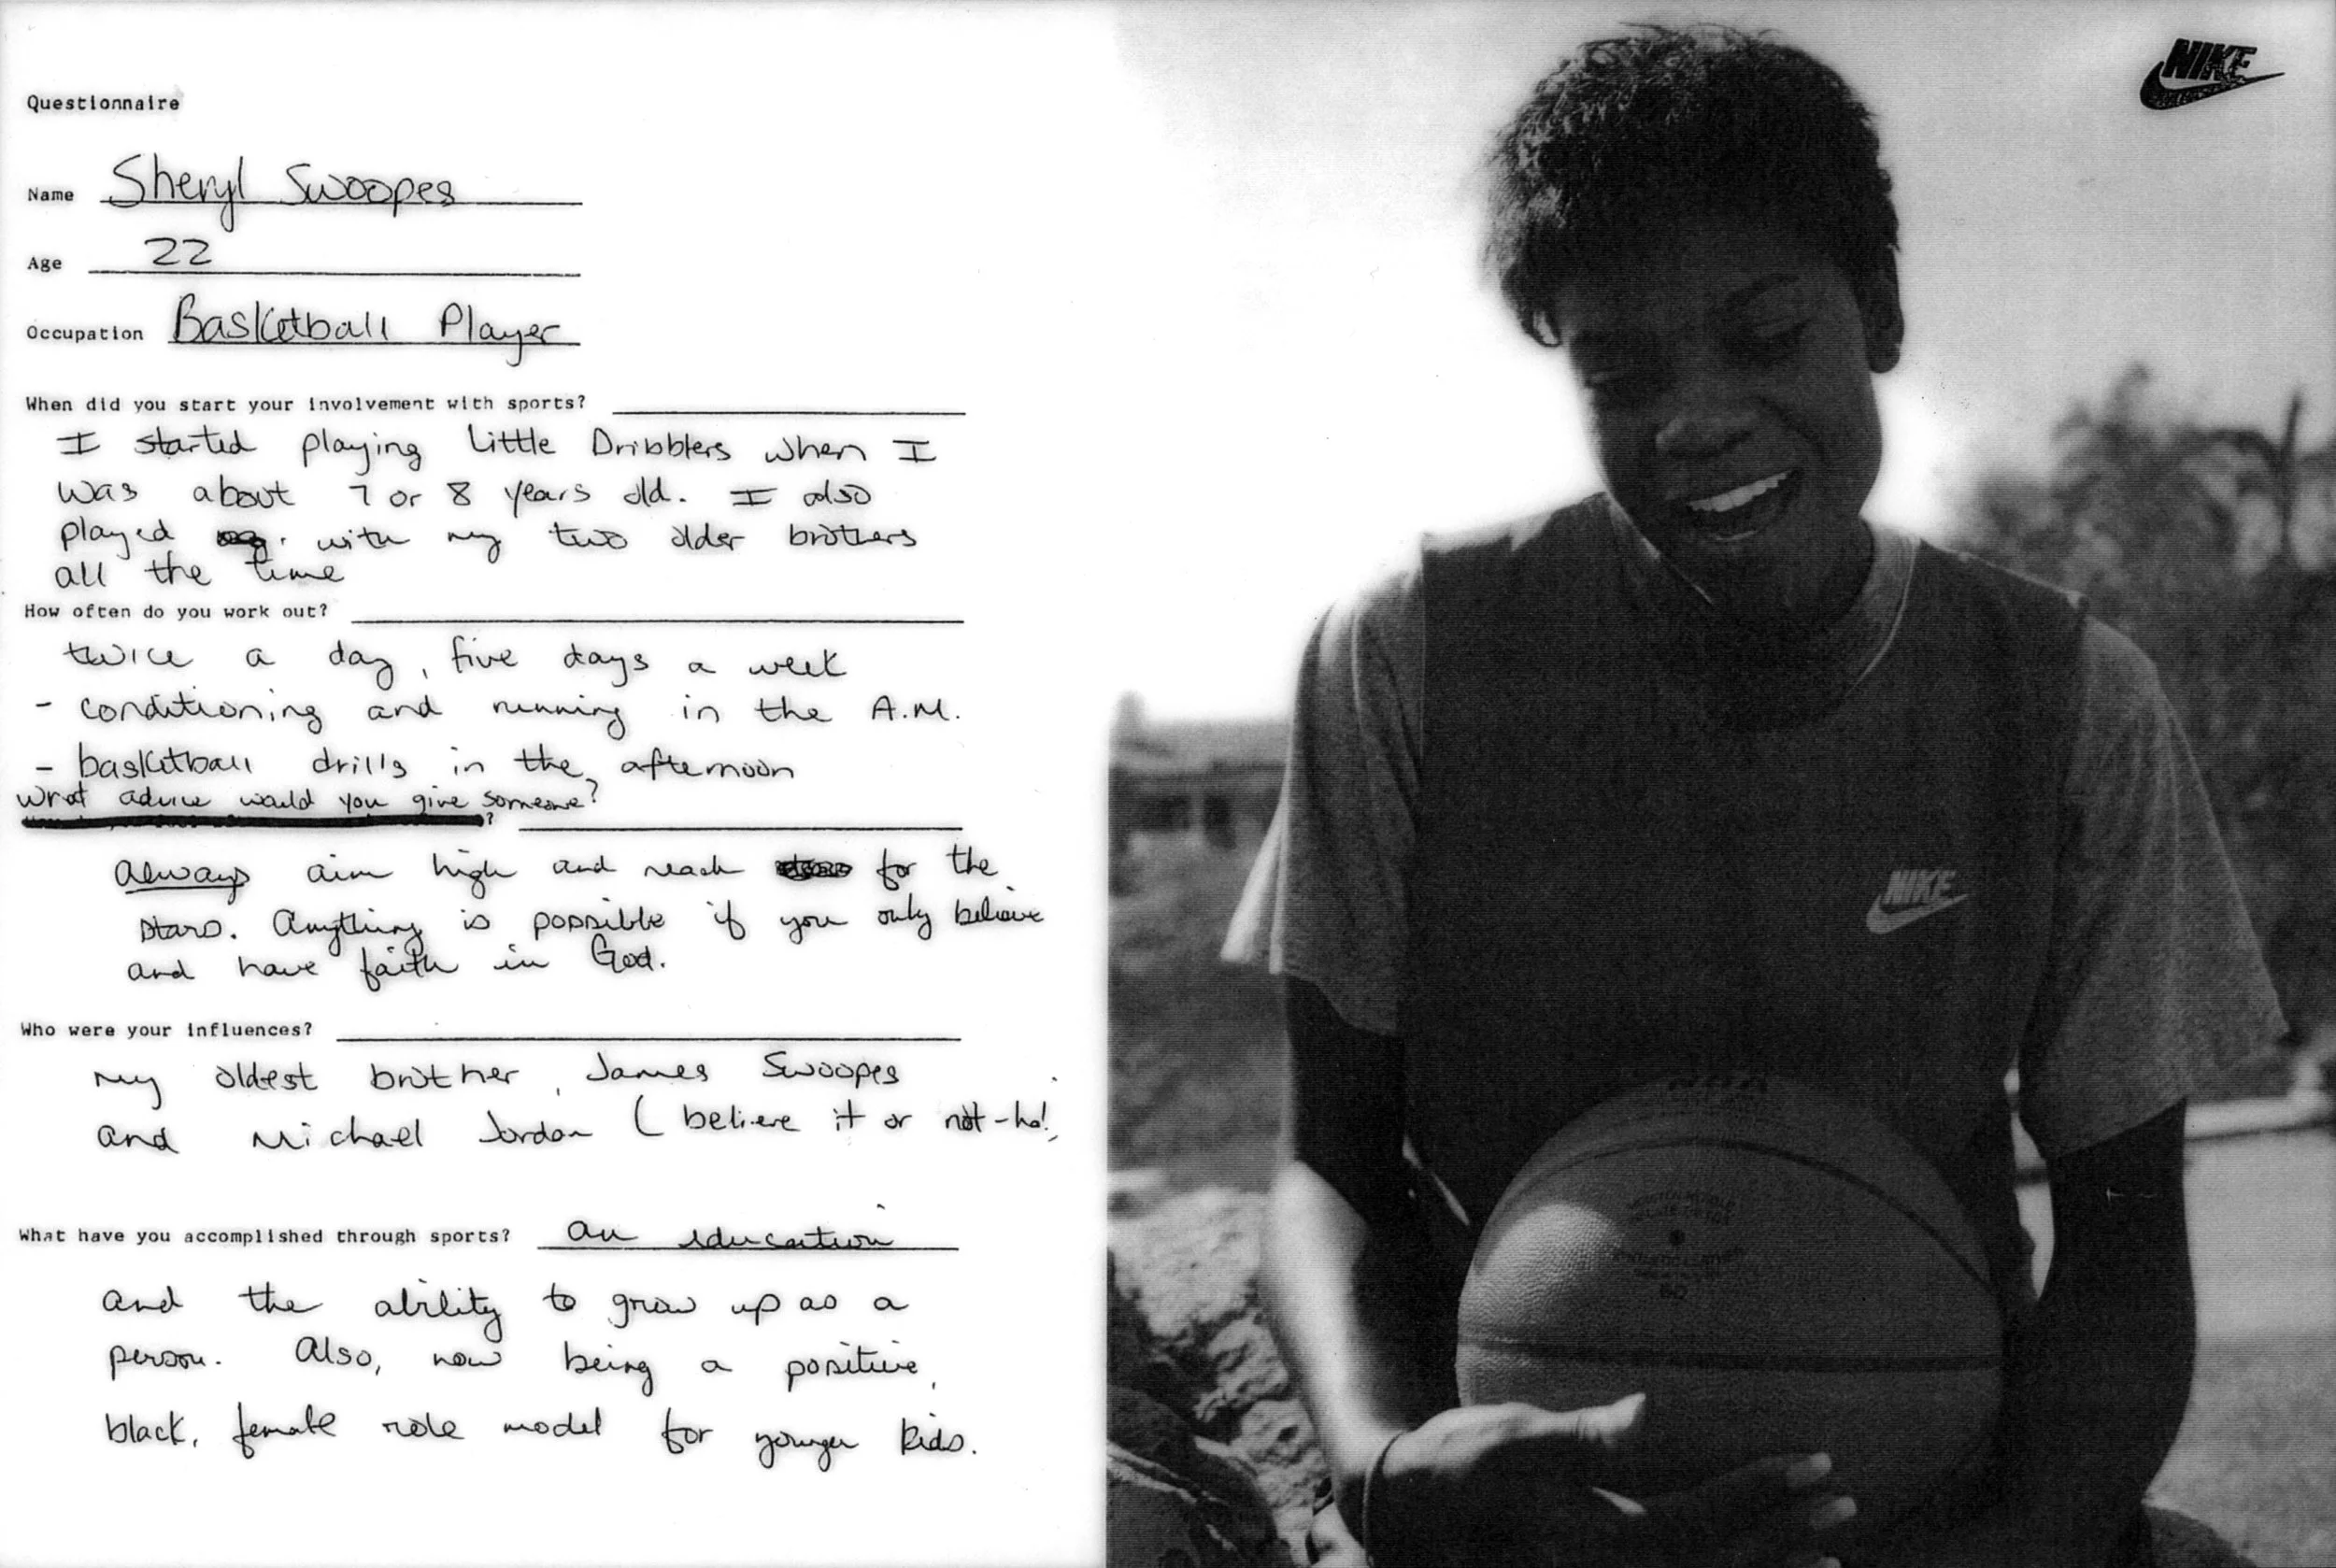 Questionnaire
Name Sheryl Swoopes
Age 22
Occupation Basketball Player
When did you start your involvement with sports?
I started playing Little Dribblers when I
was about 7 or 8 years old. I also
played with my two older brothers
all the time
How often do you work out?
twice a day, five days a week
- conditioning and running in the A.M.
- basketball drills in the afternoon
What advice would you give someone?
?
Always aim high and reach for the
stars. Anything is possible if you only believe
and have faith in God.
Who were your influences?
my oldest brother, James Swoopes
and Michael Jordan (believe it or not-ha!
What have you accomplished through sports? an education
and the ability to grow up as a
person. Also, now being a positive,
black, female role model for younger kids.
NIKE
NIKE